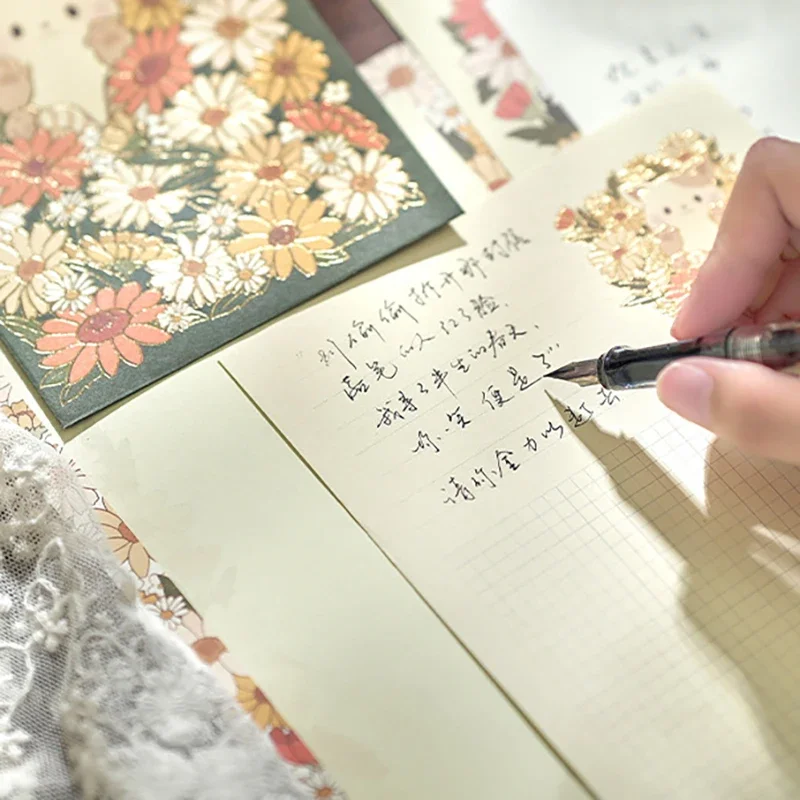 "别偷偷拆开那封信
盖笔的人红了脸.
我寻了半生的春天,
你一笑便是了"
请你全力以赴去